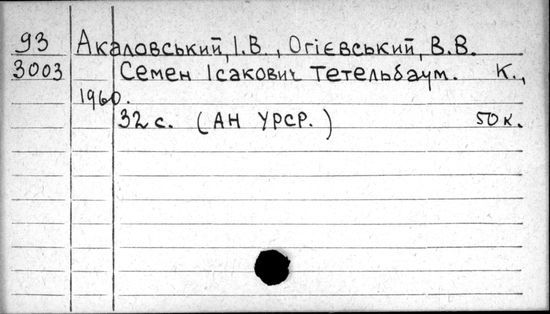 93 Акаловський, І.В., Огієвський, В.В.
3003 Семен Ісакович Тетельбаум. К.,
1960.
32 с. (АН УРСР.) 50 к.